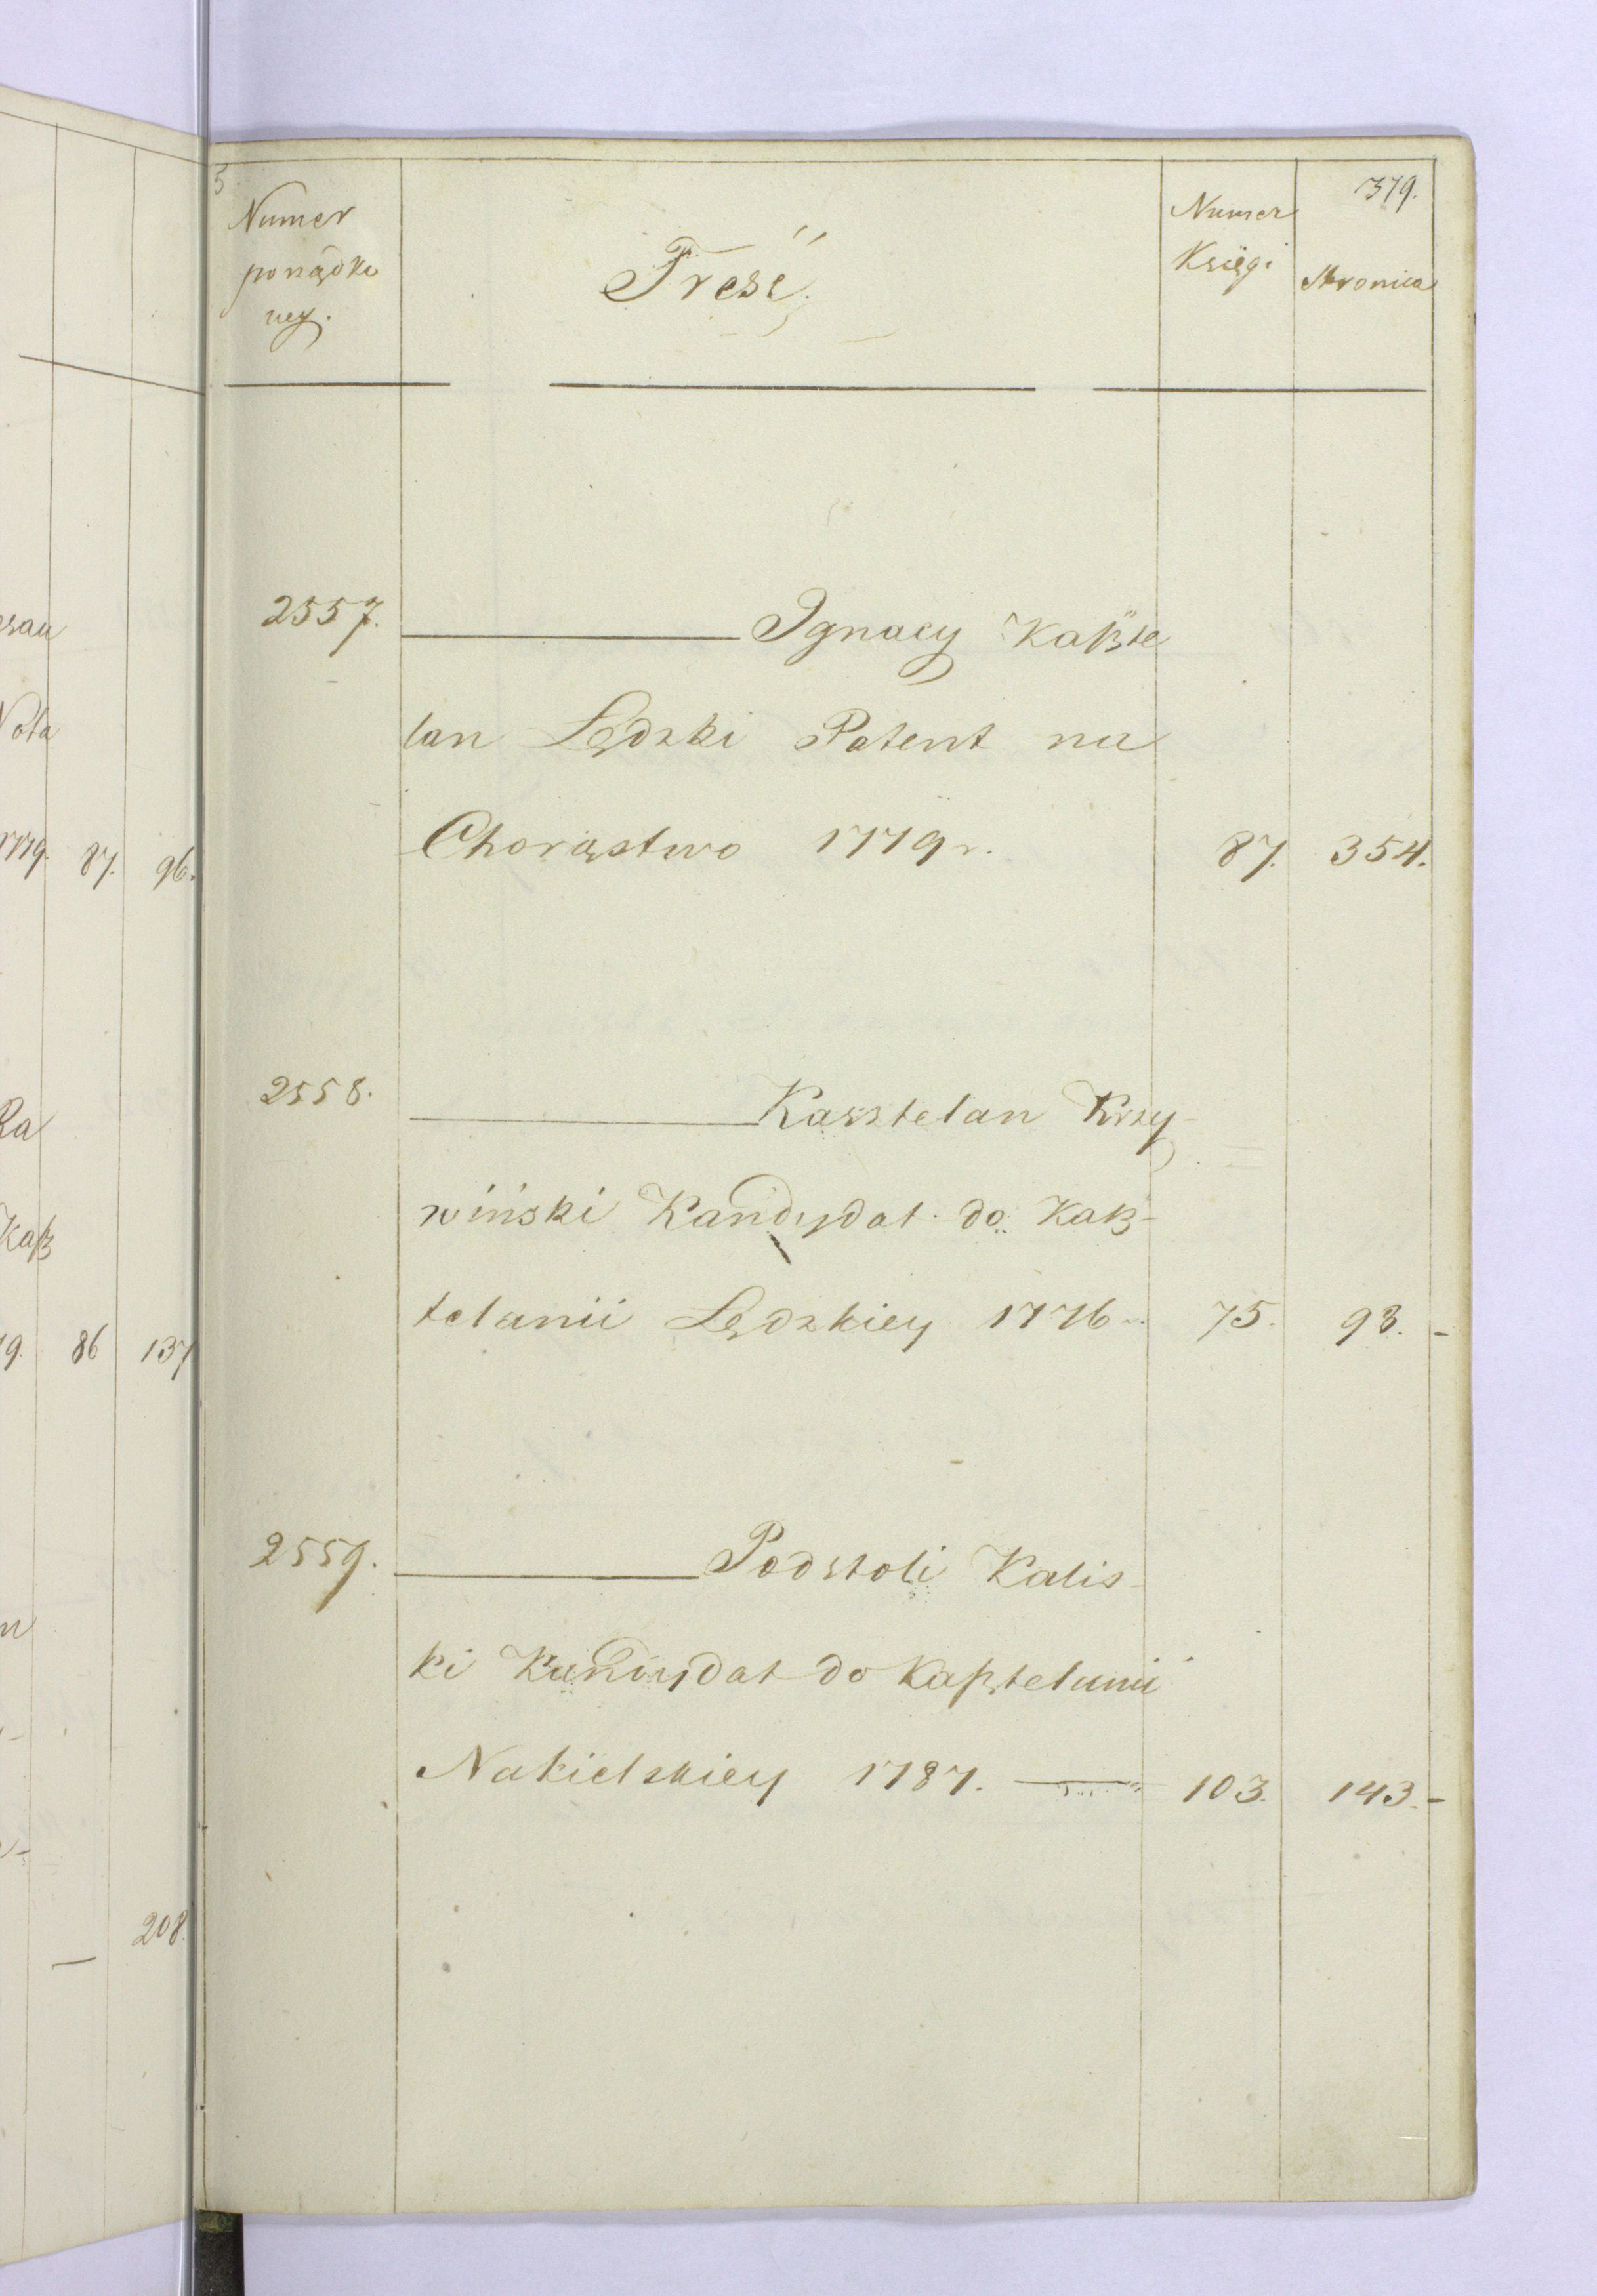 379.
Numer
porządko
wy.
Treść.
Numer
Księgi
Stronica
2557. Ignacy Kaszte
lan Lędzki Patent na
Chorąstwo 1779 r. 87. 354.
2558. Kasztelan Krzy-
wiński Kandydat do Kasz-
telanii Lędzkiey 1776 75. 93. -
2559. Podstoli Kalis-
ki Kandydat do Kasztelanii
Nakielskiey 1787. — 103. 143. -
Nota
1779. 87. 96.
Ra
Kasz
9. 86 137
208.